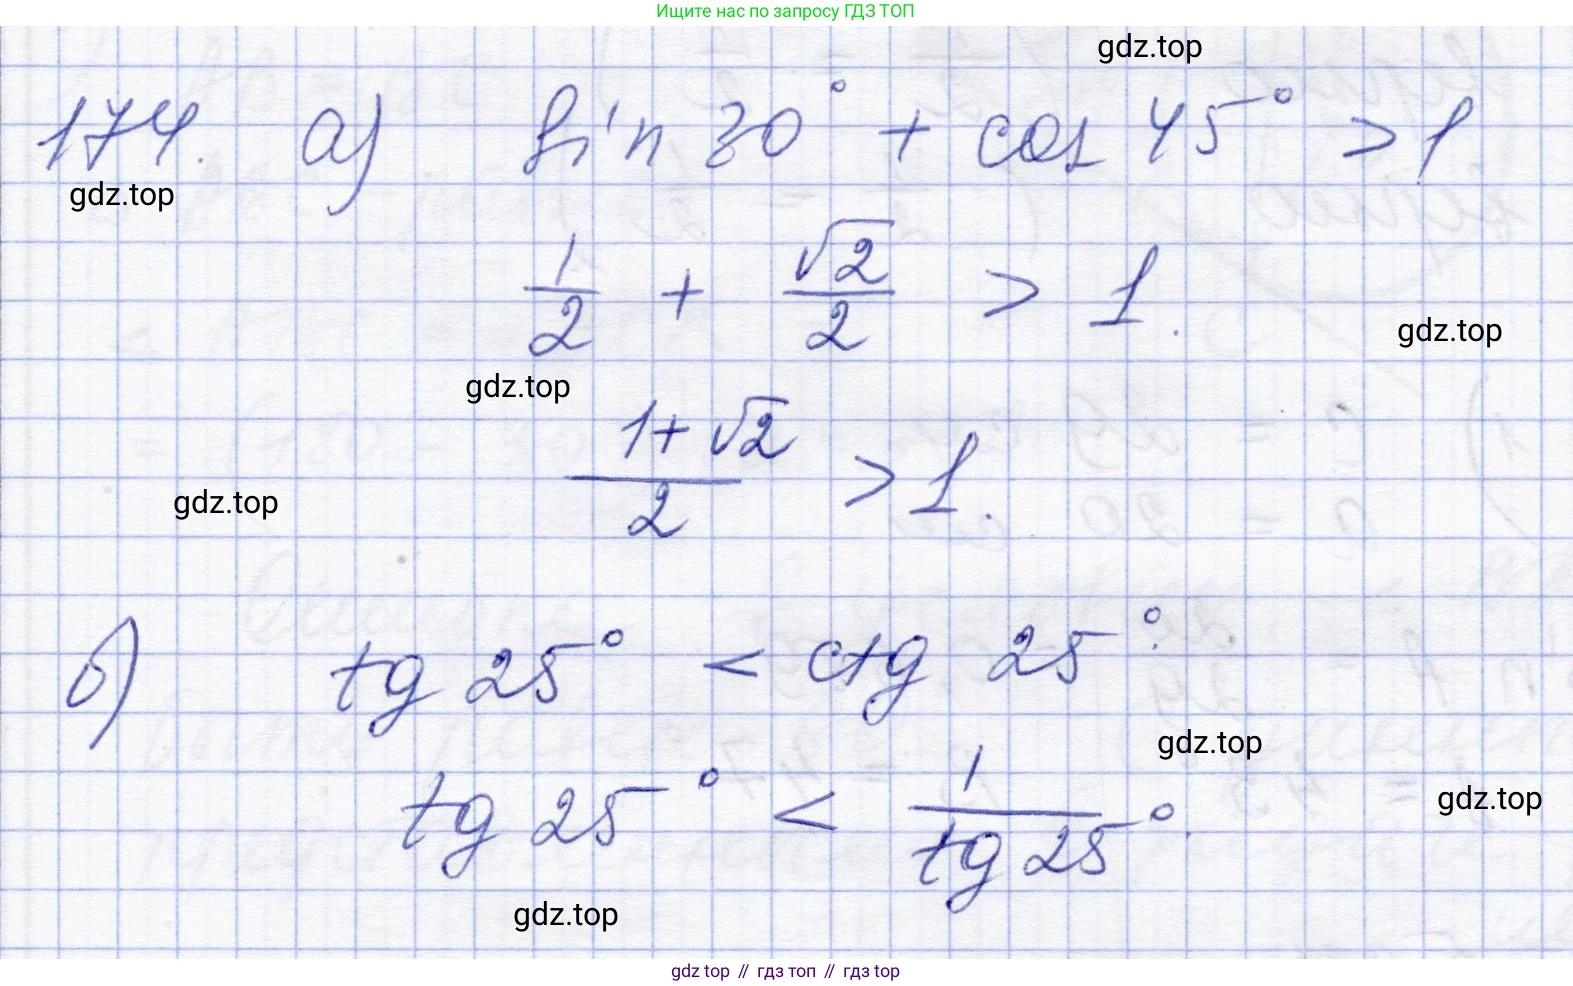 Ищите нас по запросу ГДЗ ТОП
gdz.top
174. а) sin 30° + cos 45° > 1
gdz.top
1/2 + √2/2 > 1.
gdz.top
gdz.top
(1+√2)/2 > 1.
gdz.top
б) tg 25° < ctg 25°.
gdz.top
tg 25° < 1/tg 25°.
gdz.top
gdz.top
gdz top // гдз топ // гдз top